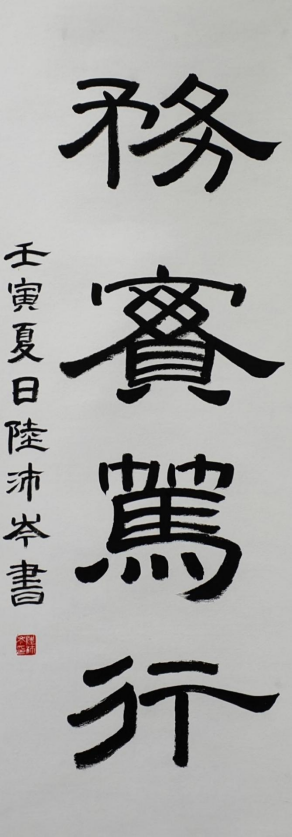 務實篤行
壬寅夏日陸沛岑書